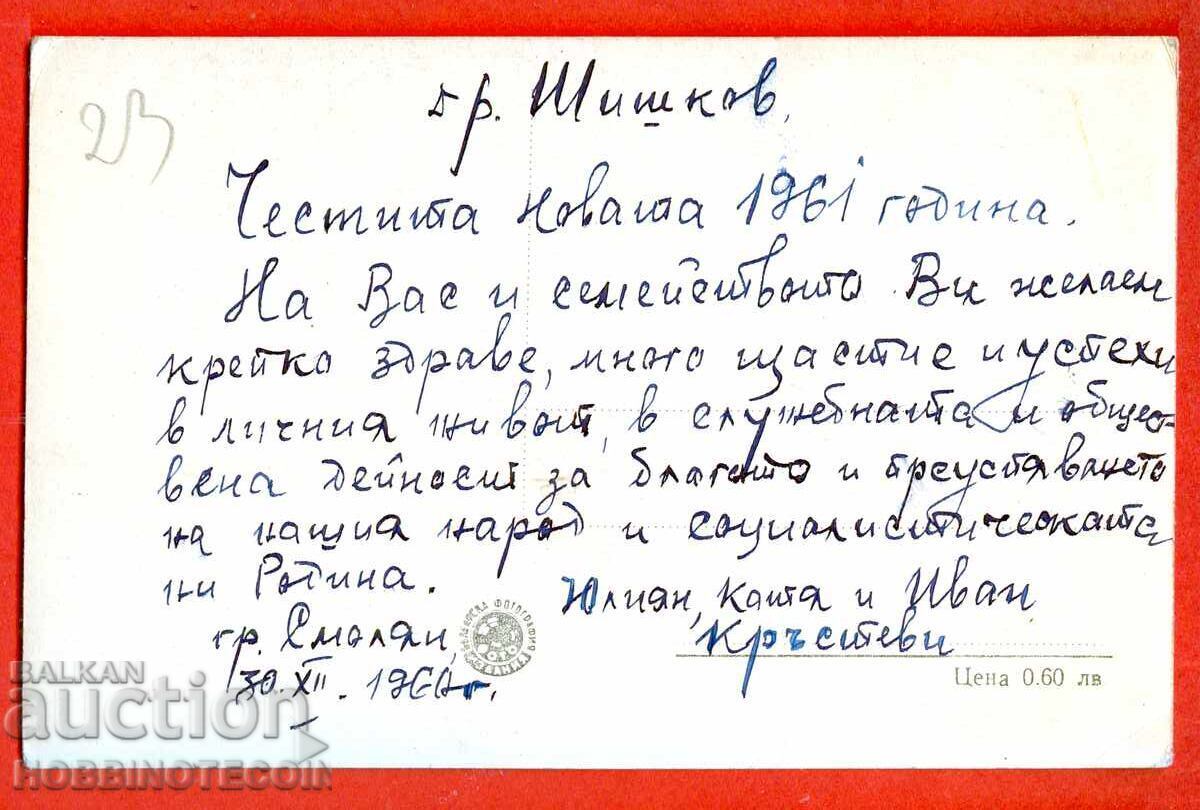 23
др. Шишков,
Честита новата 1961 година.
На Вас и семейството Ви желаем
крепко здраве, много щастие и успехи
в личния живот, в служебната и общест-
вена дейност за благото и преуспяването
на нашия народ и социалистическата
ни Родина.
Юлиян, Катя и Иван
Кръстеви
гр. Смолян,
30.XII.1960 г.
Цена 0.60 лв
BALKAN
auction
HOBBINOTECOIN